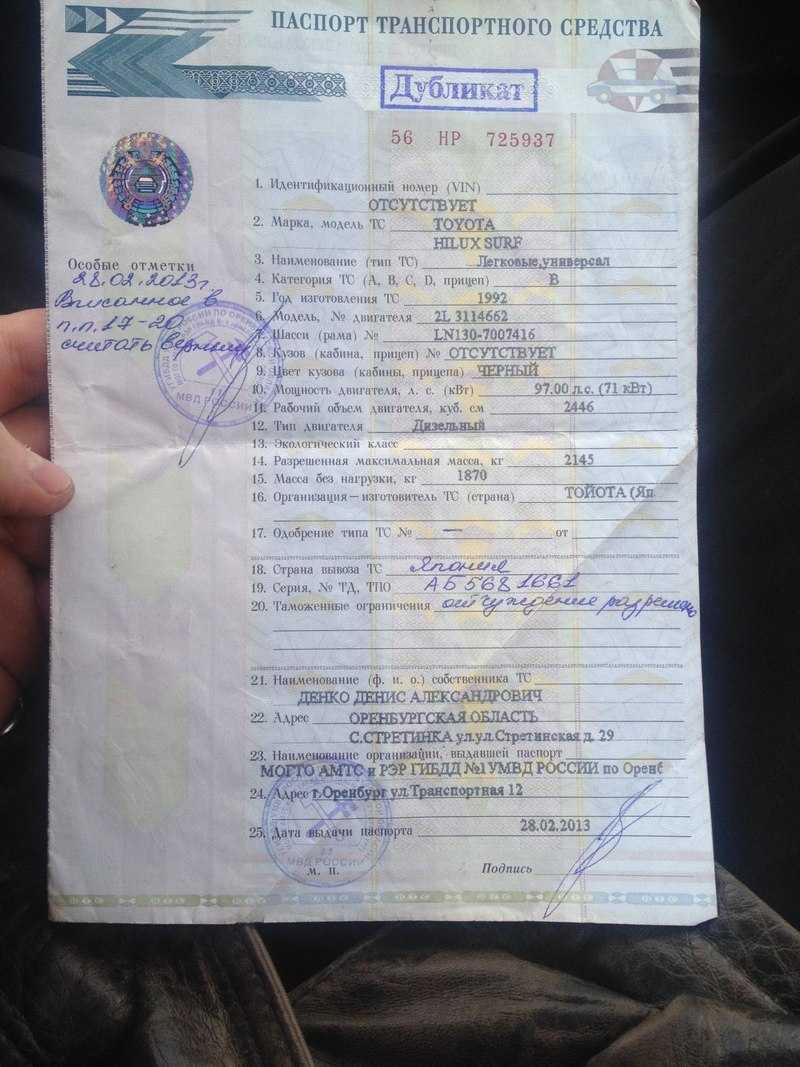 ПАСПОРТ ТРАНСПОРТНОГО СРЕДСТВА
Дубликат
56 НР 725937
1. Идентификационный номер (VIN)
ОТСУТСТВУЕТ
2. Марка, модель ТС TOYOTA
HILUX SURF
3. Наименование (тип ТС) Легковые,универсал
4. Категория ТС (А, В, С, D, прицеп) В
5. Год изготовления ТС 1992
6. Модель, № двигателя 2L 3114662
7. Шасси (рама) № LN130-7007416
8. Кузов (кабина, прицеп) № ОТСУТСТВУЕТ
9. Цвет кузова (кабины, прицепа) ЧЕРНЫЙ
10. Мощность двигателя, л. с. (кВт) 97.00 л.с. (71 кВт)
11. Рабочий объем двигателя, куб. см 2446
12. Тип двигателя Дизельный
13. Экологический класс
14. Разрешенная максимальная масса, кг 2145
15. Масса без нагрузки, кг 1870
16. Организация—изготовитель ТС (страна) ТОЙОТА (Яп
17. Одобрение типа ТС № — от
18. Страна вывоза ТС Япония
19. Серия, № ТД, ТПО АБ5681661
20. Таможенные ограничения отчуждение разрешено
21. Наименование (ф. и. о.) собственника ТС
ДЕНКО ДЕНИС АЛЕКСАНДРОВИЧ
22. Адрес ОРЕНБУРГСКАЯ ОБЛАСТЬ
С.СТРЕТИНКА ул.ул.Стретинская д. 29
23. Наименование организации, выдавшей паспорт
МОГТО АМТС и РЭР ГИБДД №1 УМВД РОССИИ по Оренб
24. Адрес г.Оренбург ул.Транспортная 12
25. Дата выдачи паспорта 28.02.2013
м. п. Подпись
Особые отметки
28.02.2013г.
Вписанное в
п.п.17-20
считать верным
МВД РОССИИ
МВД РОССИИ